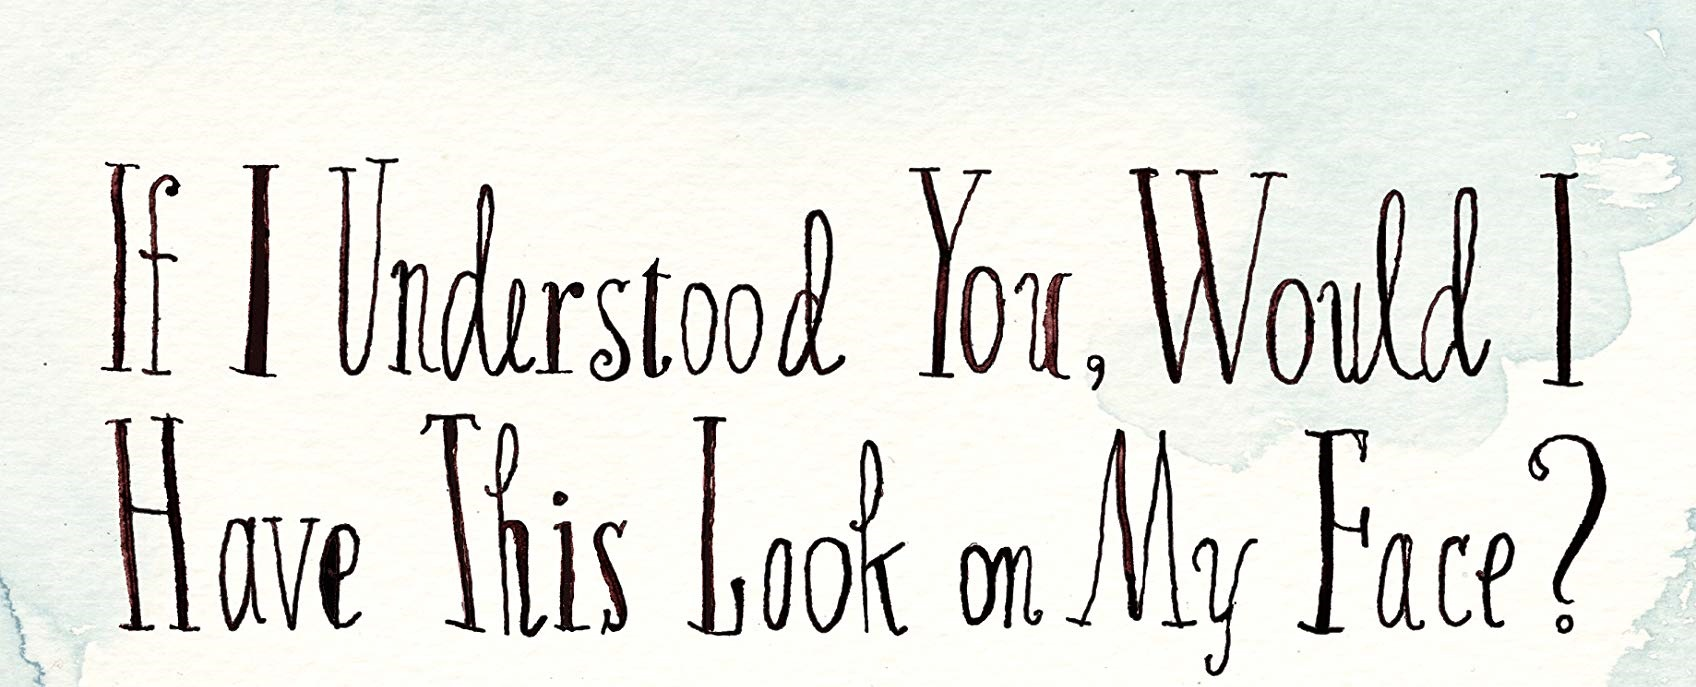 If I Understood You, Would I
Have This Look on My Face?